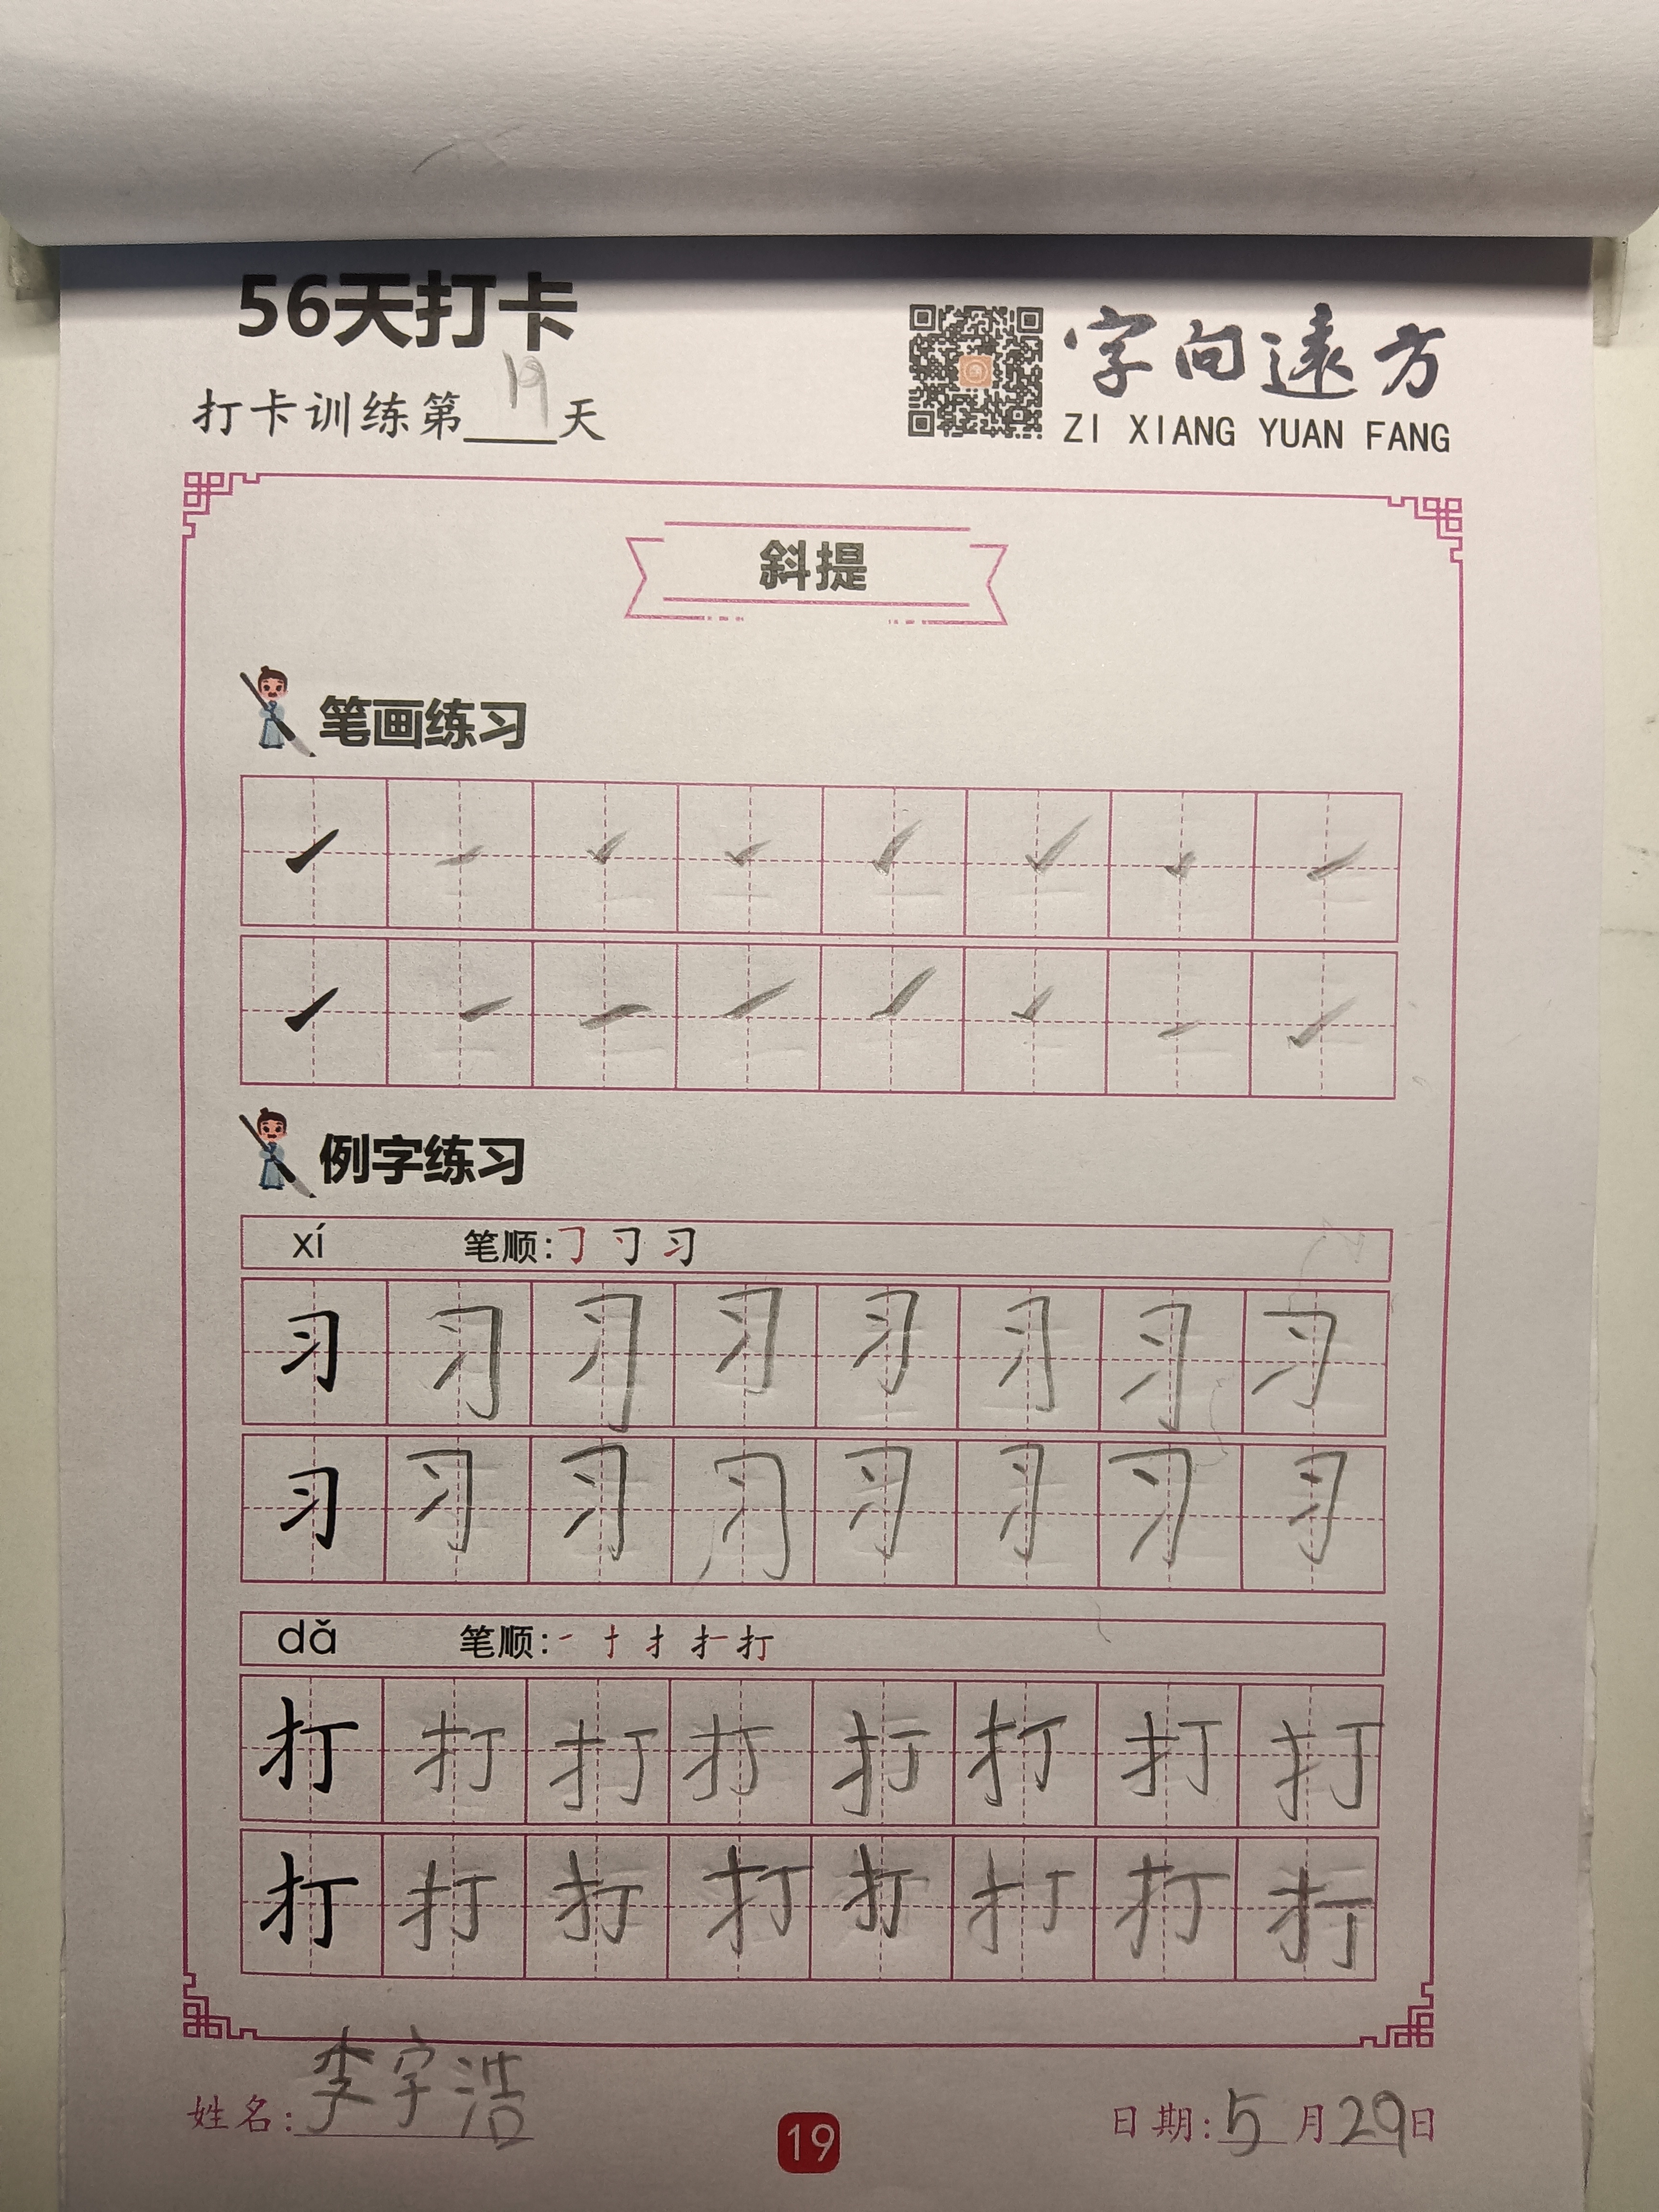 56天打卡
打卡训练第19天
字向遠方
ZI XIANG YUAN FANG
斜提
笔画练习
例字练习
xí 笔顺:
习 习 习 习 习 习 习 习
习 习 习 习 习 习 习 习
dǎ 笔顺:
打 打 打 打 打 打 打 打
打 打 打 打 打 打 打 打
姓名:李宇浩
19
日期:5月29日